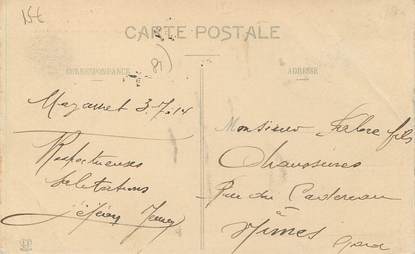 15€
CARTE POSTALE
CORRESPONDANCE
ADRESSE
Mazamet 3.7.14
Respectueuses
Salutations
Monsieur fils
Chaussures
Rue du
à
Nimes
Gard